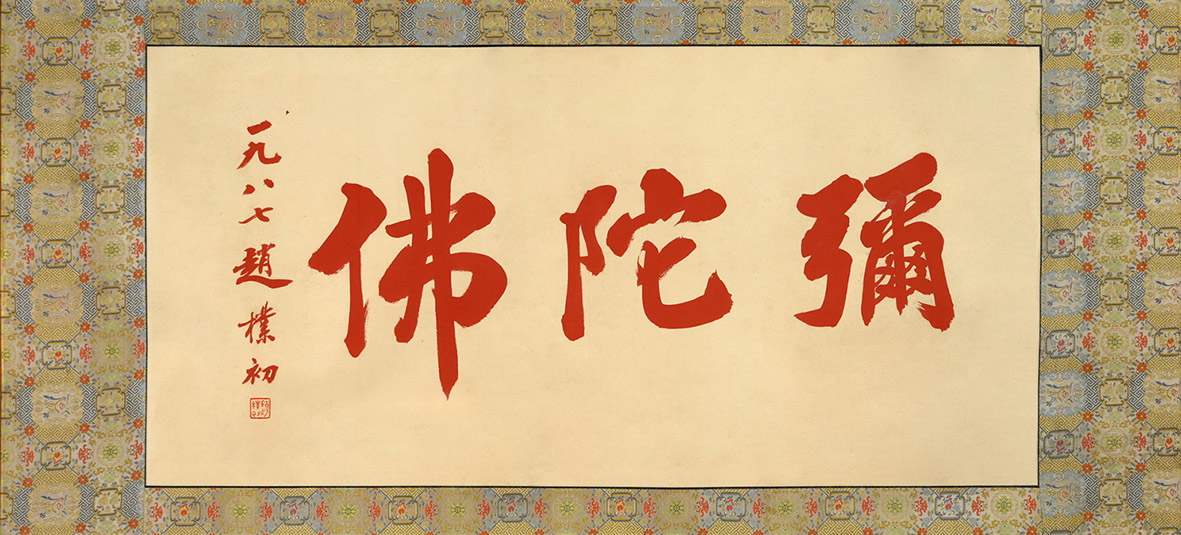 彌陀佛
一九八七趙樸初